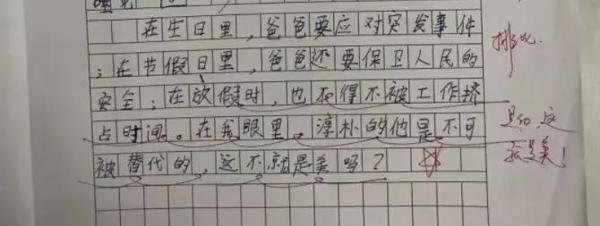 在生日里，爸爸要应对突发事件
；在节假日里，爸爸还要保卫人民的
安全；在放假时，也不得不被工作挤
占时间。在我眼里，淳朴的他是不可
被替代的，这不就是美吗？
排比.
是的,这
就是美!